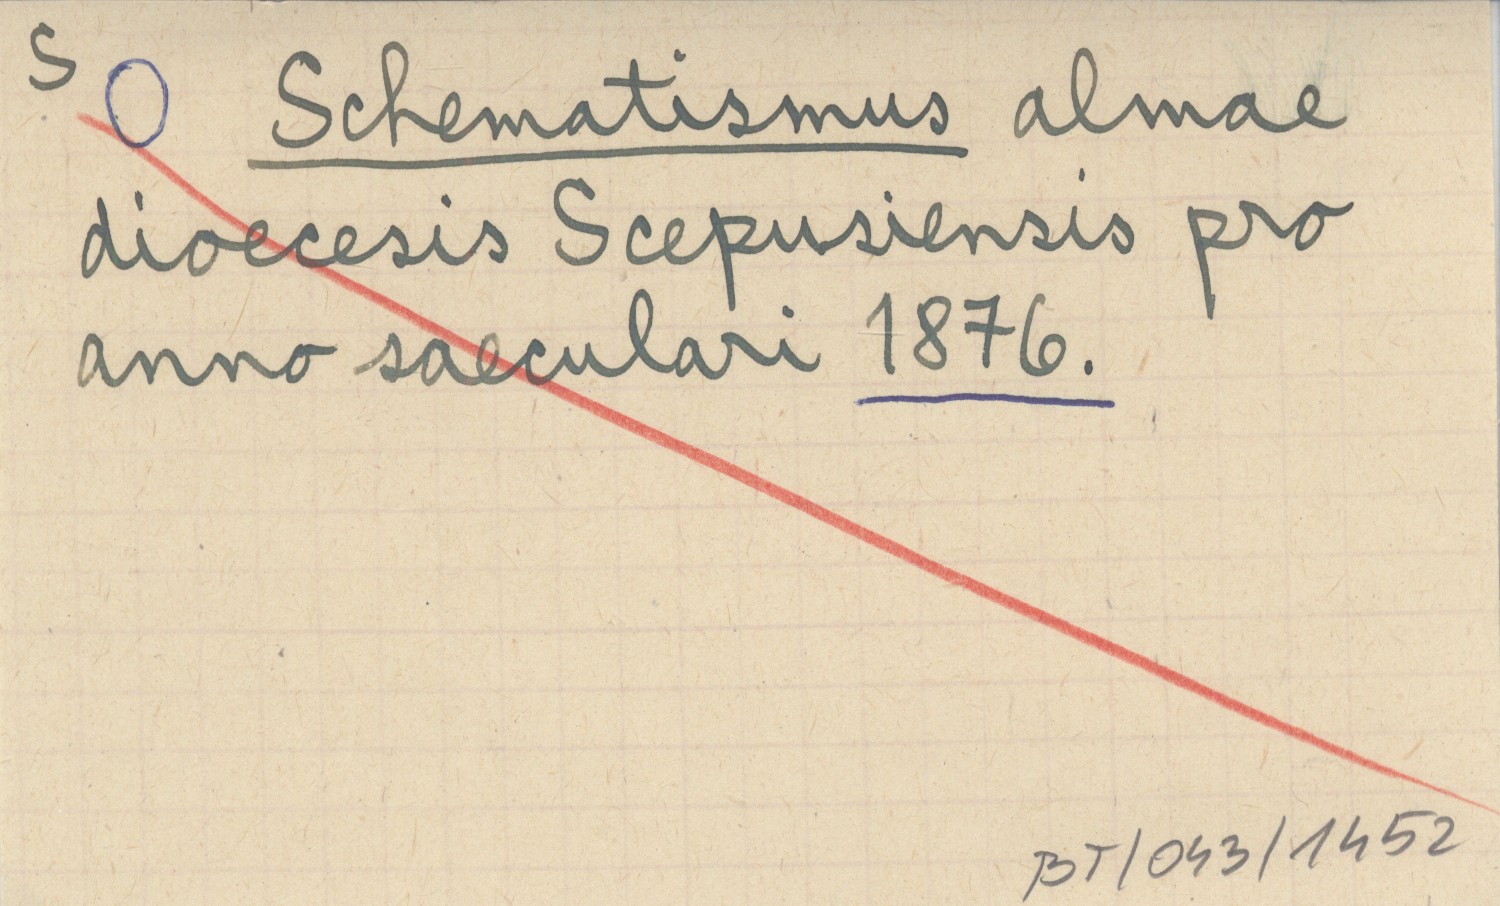 S O Schematismus almae
dioecesis Scepusiensis pro
anno saeculari 1876.
BT/043/1452